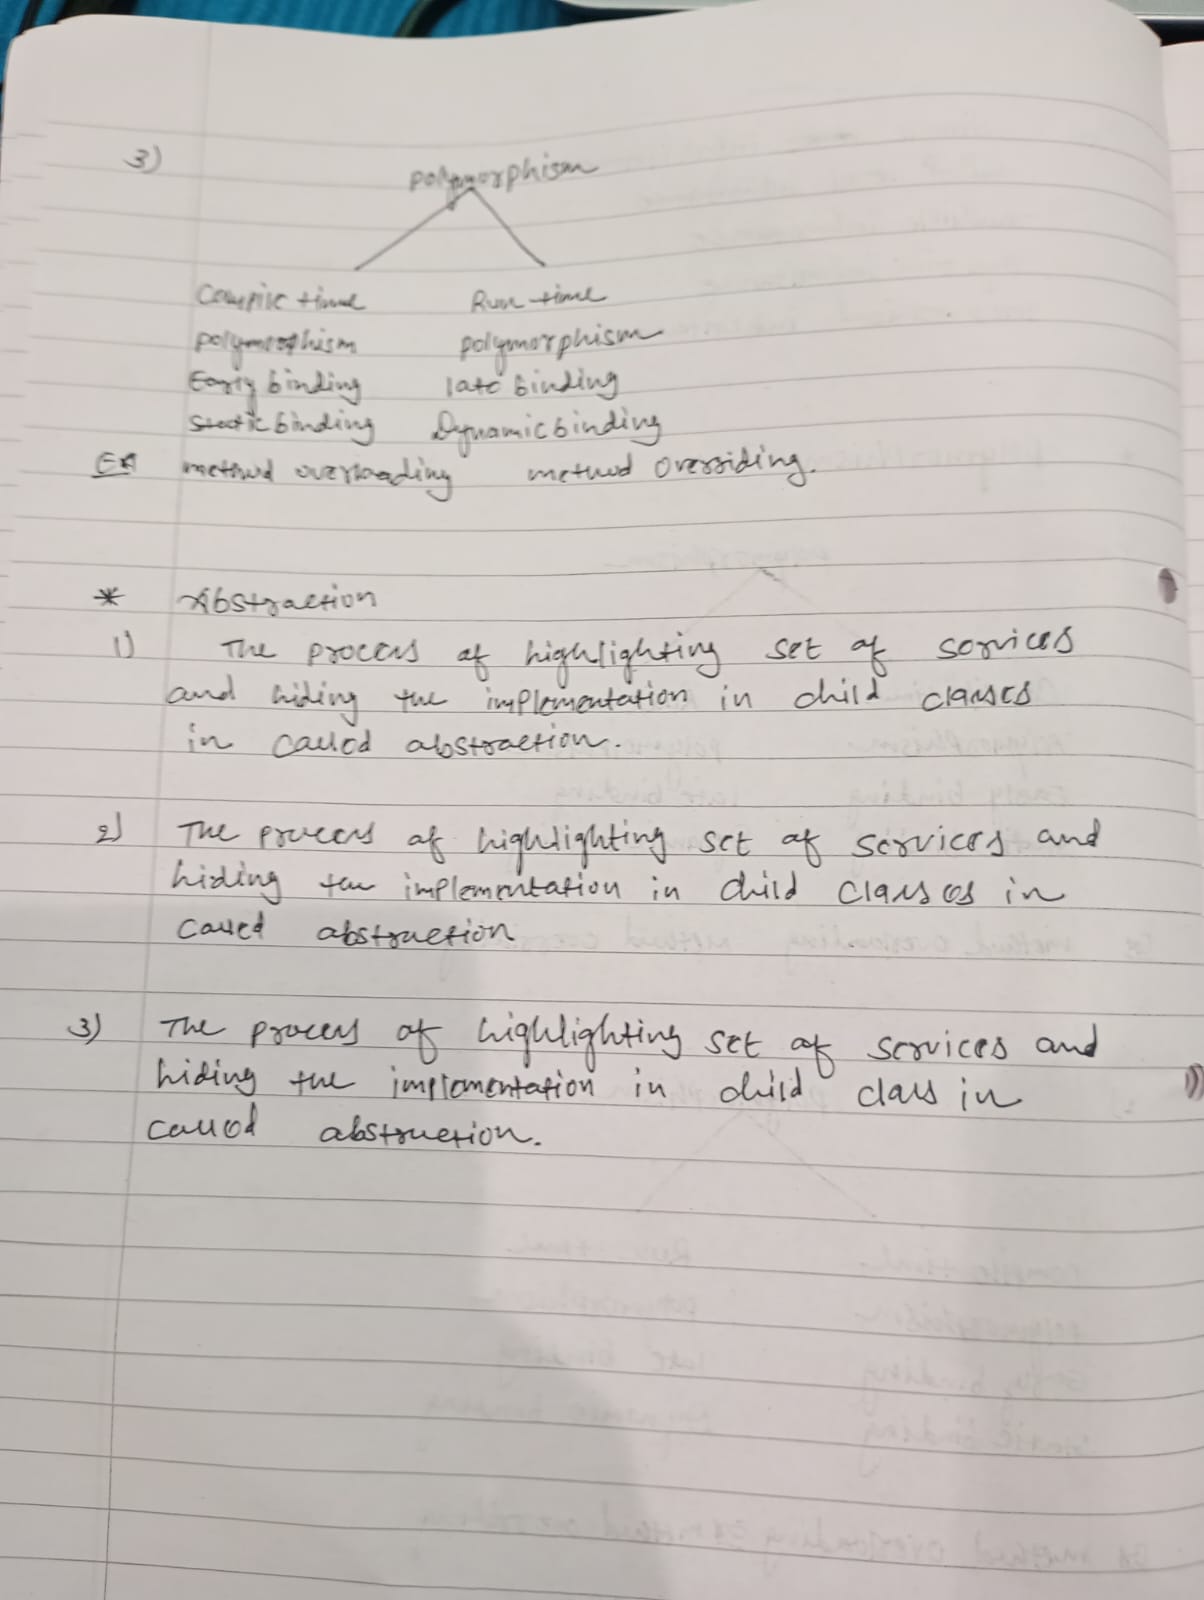 3)
polymorphism
Compile time Run time
polymorphism polymorphism
Early binding late binding
Static binding Dynamic binding
EX method overloading method overriding.
* Abstraction
1) The process of highlighting set of services
and hiding the implementation in child classes
in called abstraction.
2) The process of highlighting set of services and
hiding the implementation in child classes in
called abstraction
3) The process of highlighting set of services and
hiding the implementation in child class in
called abstraction.